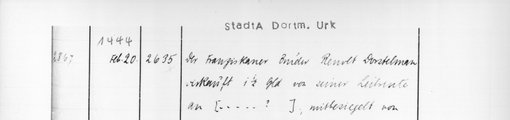 StadtA Dortm. Urk
1444
2847 Feb. 20 2635 Der Franziskaner Bruder Renolt Dorstelman
verkauft 1½ Gld von seiner Leibrente
an [.....? ], mitbesiegelt von